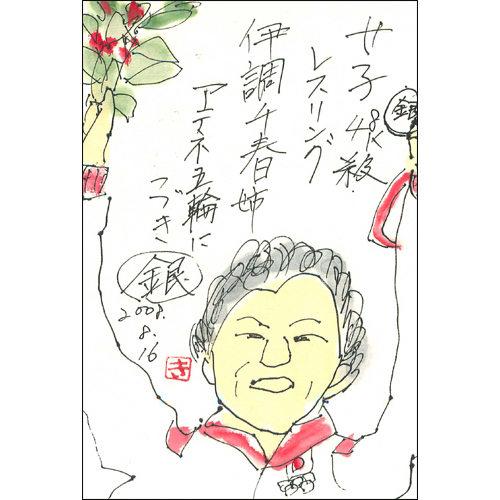 女子48K級
レスリング
伊調千春姉
アテネ五輪に
つづき
銀
2008.
8.16
き
銀